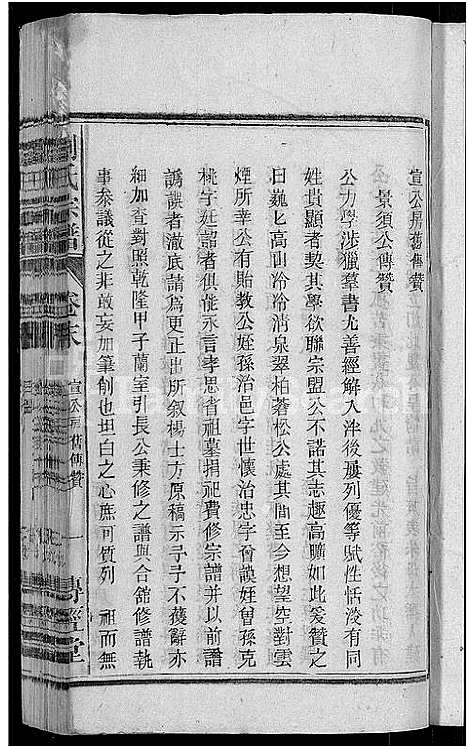 宣公房舊傳贊
景須公傳贊
公力學涉獵羣書尤善經解入泮後屢列優等賦性恬淡有同
姓貴顯者契其學欲聯宗盟公不諾其志趣高曠如此爰贊之
曰巍巍高山泠泠清泉翠柏蒼松公處其間至今想望空對雲
煙所幸公有貽教公姪孫治邑字世懷治忠字曾謨姪曾孫克
桃字廷諮者俱能永言孝思者祖墓捐祀費修宗譜并以前譜
譌誤者澈底請爲更正出所叙楊士方原稿示予予不獲辭亦
細加查對照乾隆甲子蘭室引長公秉修之譜與合舘修譜執
事叅議從之非敢妄加筆削也坦白之心庶可質列 祖而無
劉氏宗譜 卷末 宣公房舊傳贊 一 傳經堂